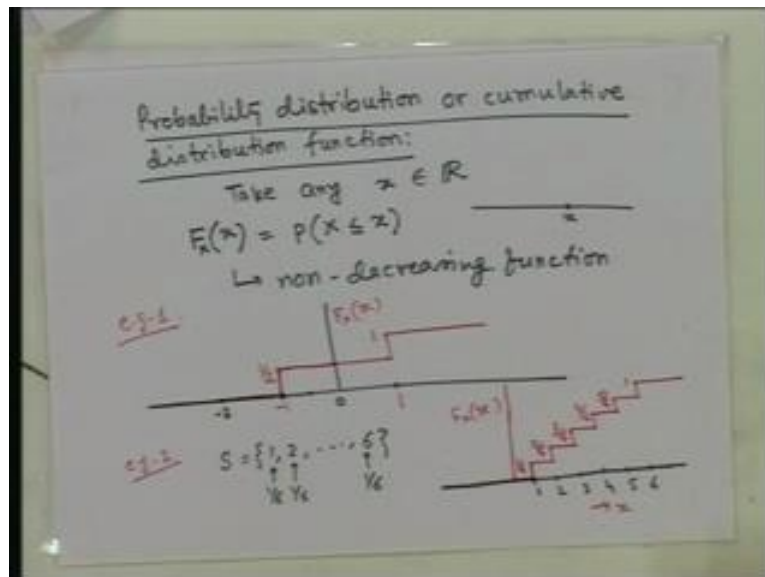 Probability distribution or cumulative
distribution function:
Take any x ∈ ℝ
x
Fₓ(x) = P(X ≤ x)
↳ non-decreasing function
e.g-1
Fₓ(x)
½ 1
-2 -1 0 1
e.g-2 S = {1, 2, ...., 6}
⅙ ⅙ ⅙
Fₓ(x)
1
1 2 3 4 5 6
→ x